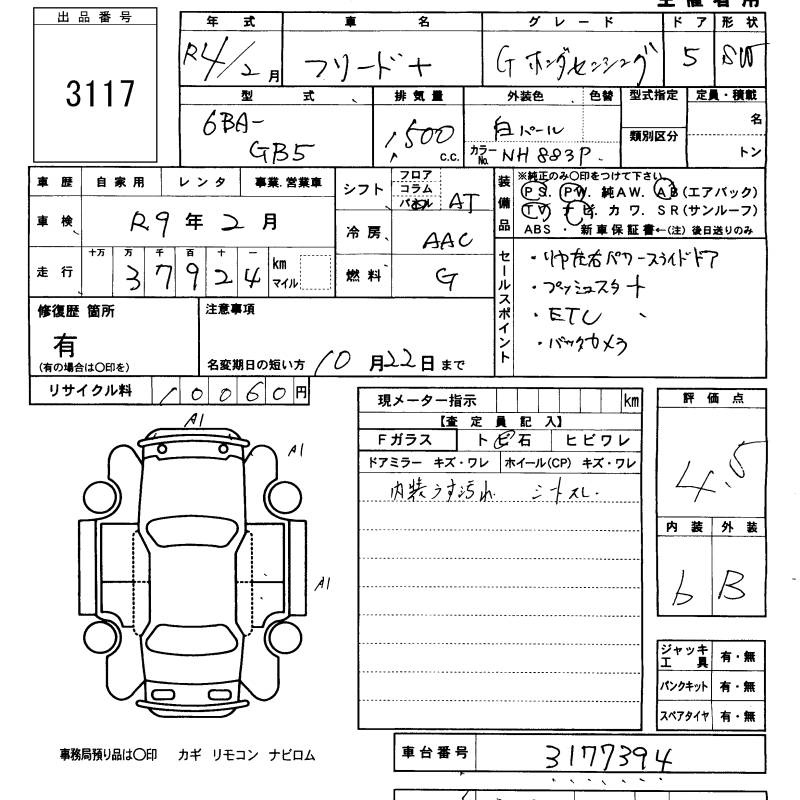 主催者用
出品番号 年式 車名 グレード ドア 形状
3117 R4/2月 フリード+ G ホンダセンシング 5 SW
型式 排気量 外装色 色替 型式指定 定員・積載
6BA-GB5 1500 c.c. 白パール 類別区分 名
カラーNo. NH883P トン
車歴 自家用 レンタ 事業.営業車 シフト フロア コラム パネル AT
装備品 ※純正のみ〇印をつけて下さい。
PS. PW. 純AW. AB(エアバック)
TV ナビ. カワ. SR(サンルーフ)
ABS ・ 新車保証書←(注) 後日送りのみ
車検 R9年2月 冷房 AAC
走行 十万 万 千 百 十 一
37924 km マイル 燃料 G
セールスポイント
・リヤ左右パワースライドドア
・プッシュスタート
・ETC
・バックカメラ
修復歴 箇所 注意事項
有
(有の場合は〇印を) 名変期日の短い方 10月22日まで
リサイクル料 10060円
現メーター指示 km 評価点
【査定員記入】
Fガラス ト ビ 石 ヒビワレ
ドアミラー キズ・ワレ ホイール(CP) キズ・ワレ
内装うす汚れ シートスレ
4.5
内装 外装
b B
A1
A1
A1
ジャッキ工具 有・無
パンクキット 有・無
スペアタイヤ 有・無
事務局預り品は〇印 カギ リモコン ナビロム
車台番号 3177394